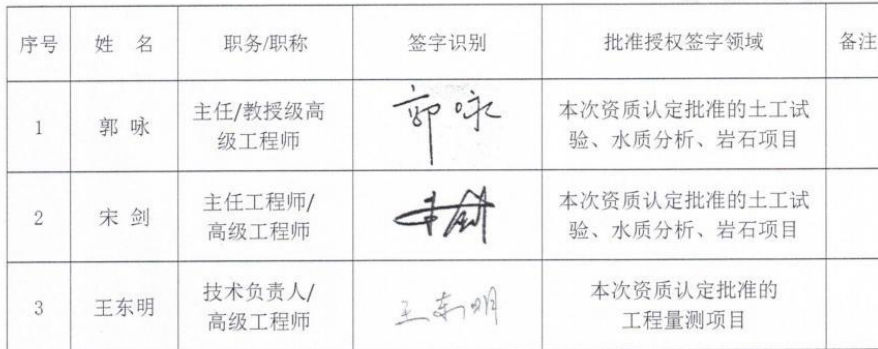 序号 姓 名 职务/职称 签字识别 批准授权签字领域 备注
1 郭 咏 主任/教授级高级工程师 郭咏 本次资质认定批准的土工试验、水质分析、岩石项目
2 宋 剑 主任工程师/高级工程师 宋剑 本次资质认定批准的土工试验、水质分析、岩石项目
3 王东明 技术负责人/高级工程师 王东明 本次资质认定批准的工程量测项目